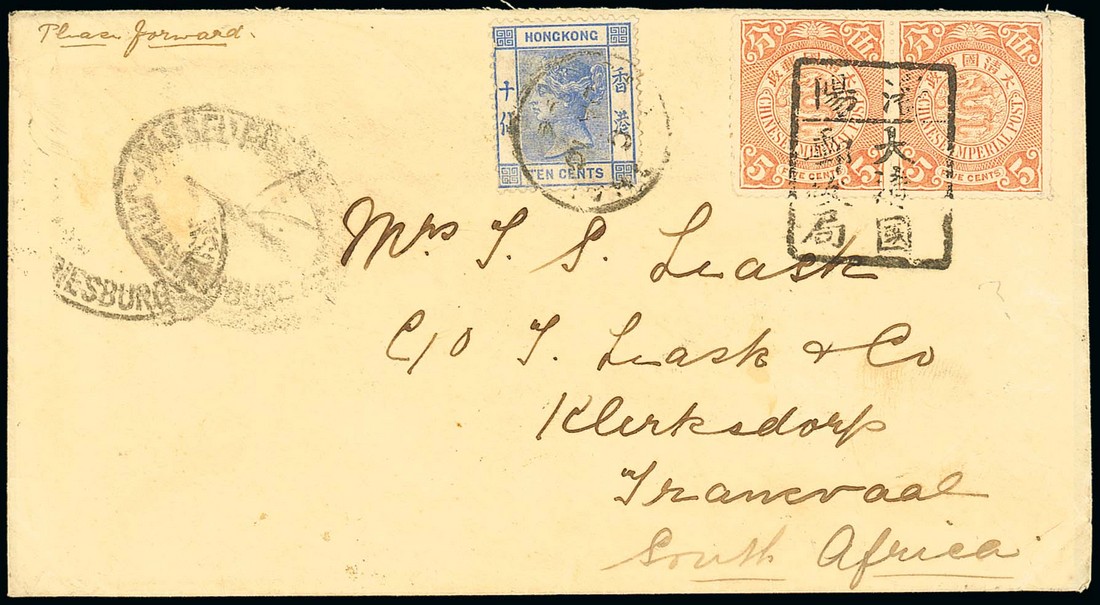 Please forward.
HONGKONG
香港
十仙
TEN CENTS
大清國郵政
伍分
CHINESE IMPERIAL POST
5 FIVE CENTS 5
大清國郵政
伍分
CHINESE IMPERIAL POST
5 FIVE CENTS 5
大清國
局
NESBURG
Mrs T. S. Leask
C/O T. Leask & Co
Klerksdorp
Transvaal
South Africa